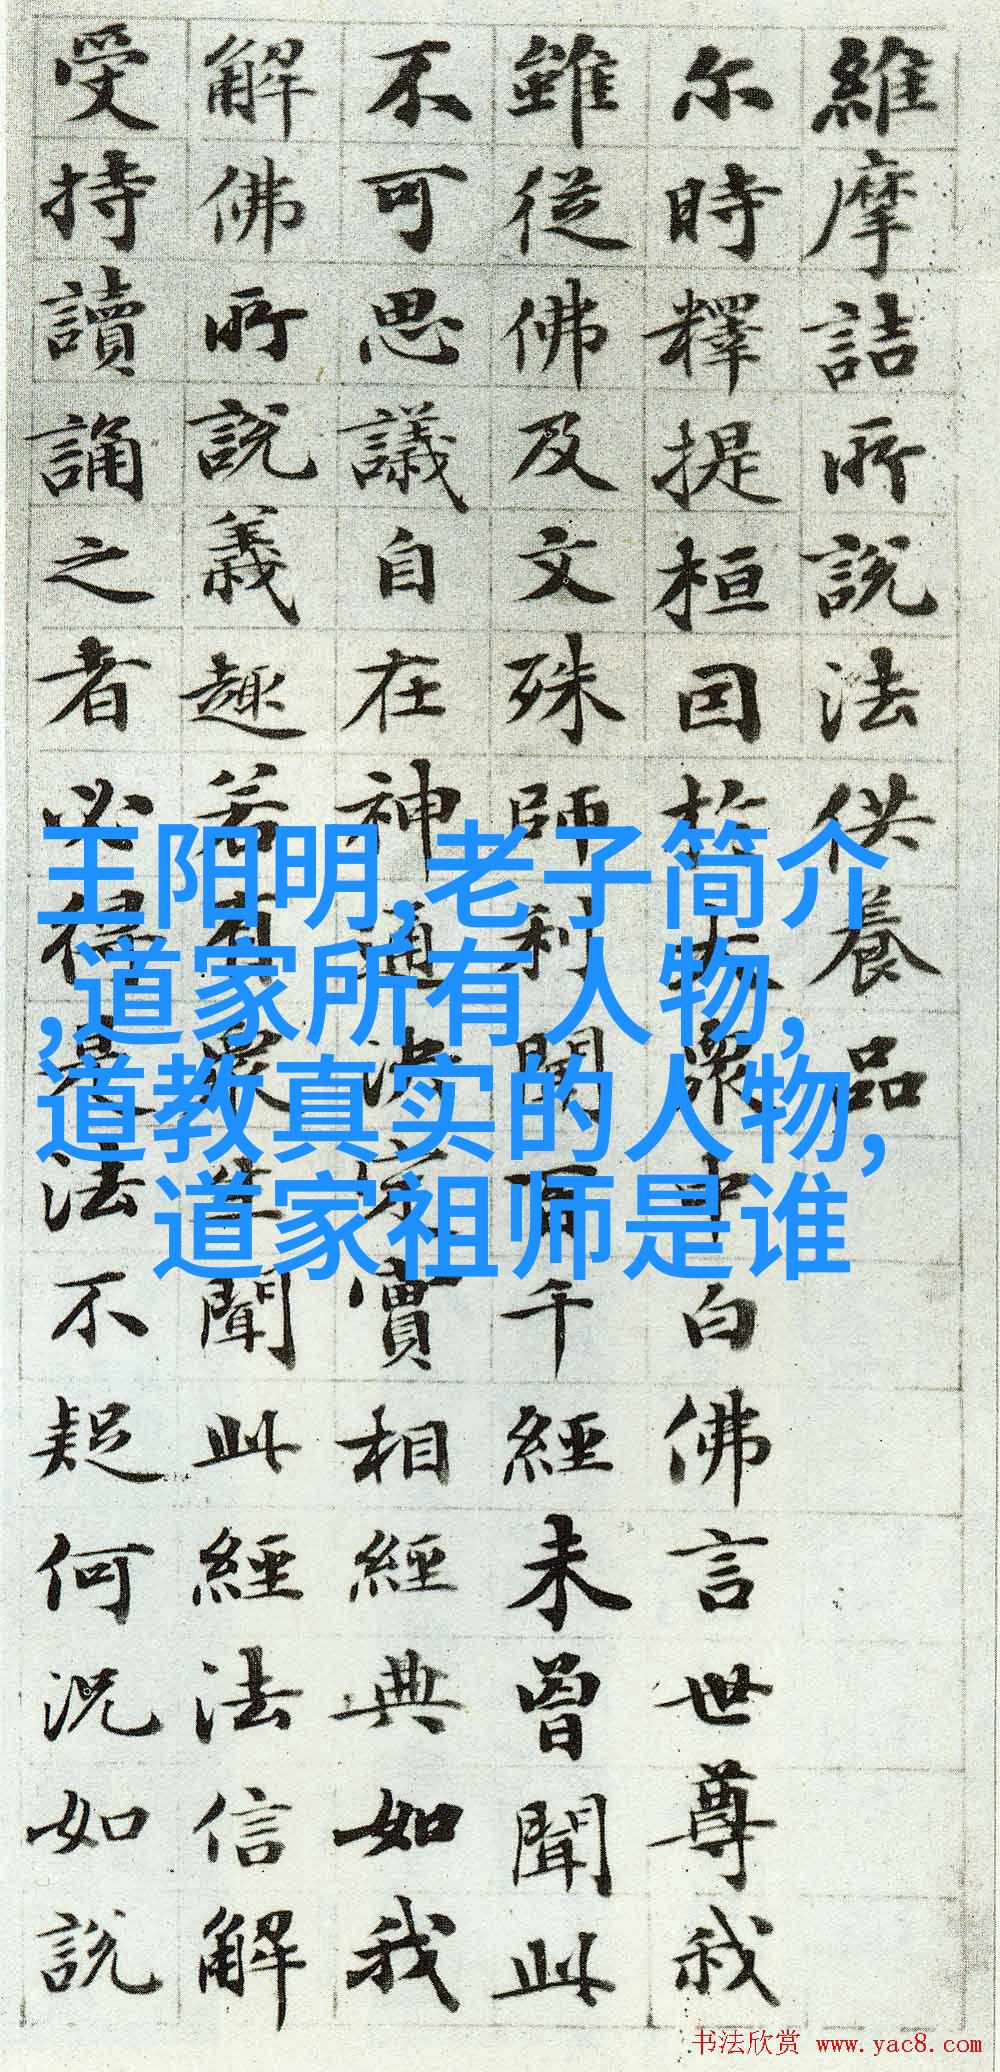 維摩詰所說法供養品
尔時釋提桓因於大眾中白佛言世尊我
雖從佛及文殊師利聞百千經未曾聞此
不可思議自在神通決定實相經典如我
解佛所說義趣若有眾生聞此經法信解
受持讀誦之者必得是法不疑何況如說
王阳明,老子简介
,道家所有人物,
道教真实的人物,
道家祖师是谁
书法欣赏 www.yac8.com